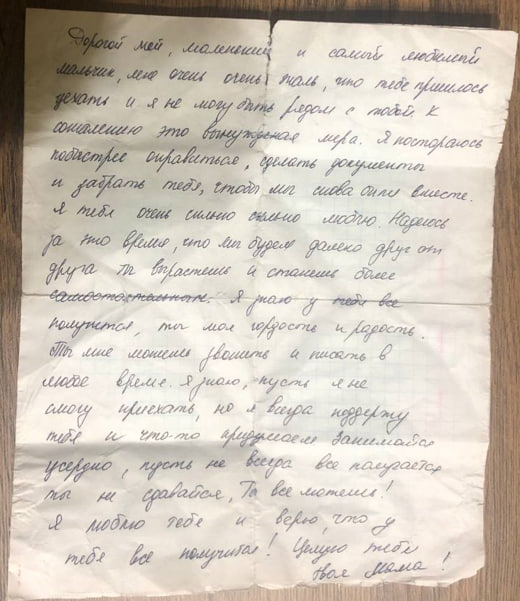 Дорогой мой, маленький и самый любимый
мальчик, мне очень очень жаль, что тебе пришлось
уехать и я не могу быть рядом с тобой к
сожалению это вынужденная мера. Я постараюсь
побыстрее оправиться, сделать документы
и забрать тебя, чтобы мы снова были вместе.
Я тебя очень сильно сильно люблю. Надеюсь
за это время, что мы будем далеко друг от
друга ты вырастешь и станешь более
самостоятельным. Я знаю у тебя все
получится, ты моя гордость и радость.
Ты мне можешь звонить и писать в
любое время. Я знаю, пусть я не
смогу приехать, но я всегда поддержу
тебя и что-то придумаем Занимайся
усердно, пусть не всегда все получается
ты не сдавайся, Ты все можешь!
Я люблю тебя и верю, что у
тебя все получится! Целую тебя
Твоя Мама!